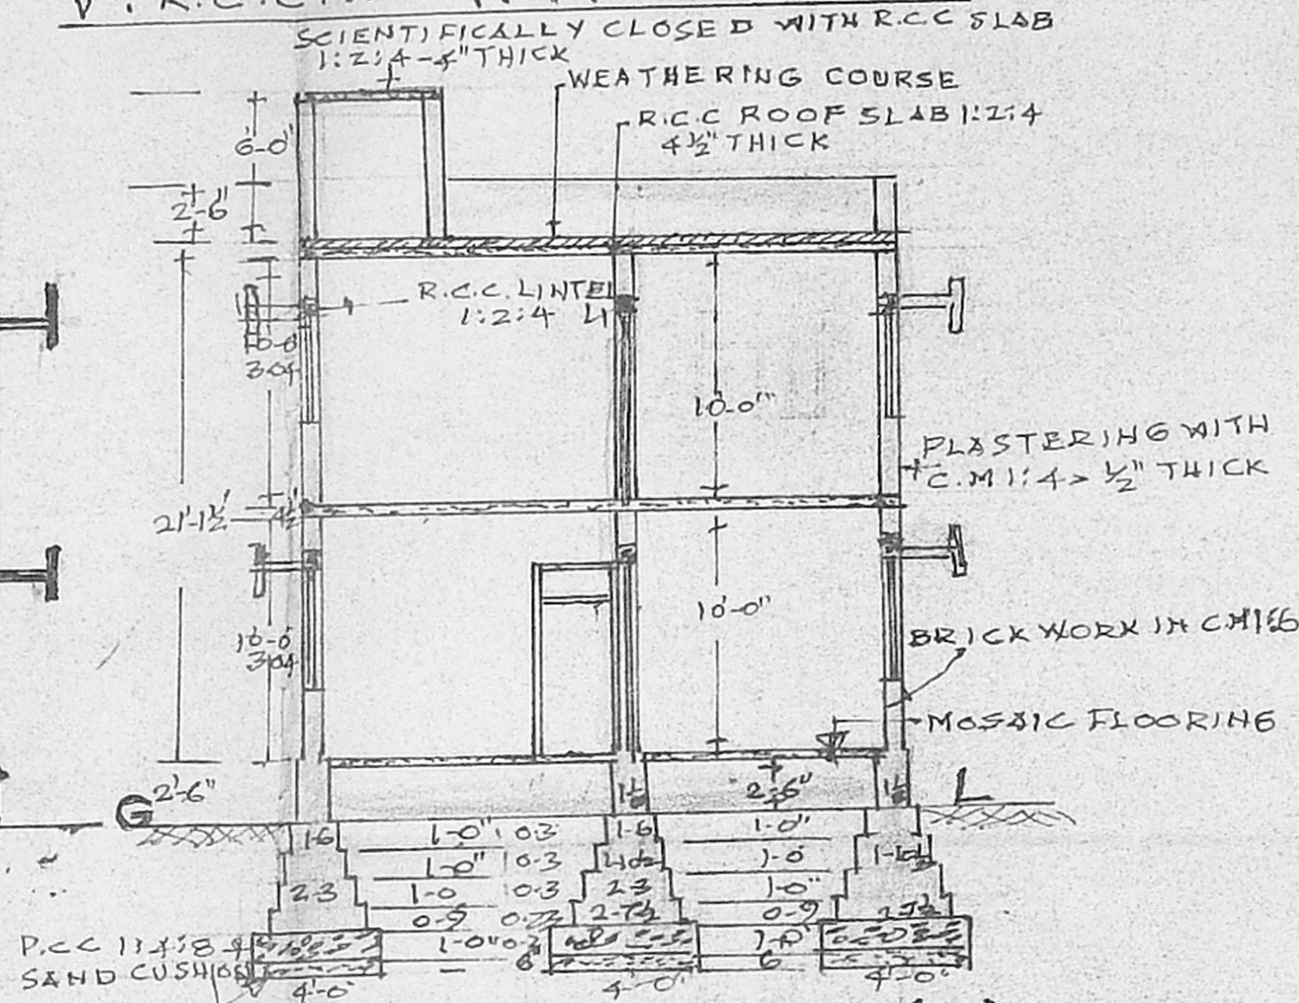 SCIENTIFICALLY CLOSED WITH R.C.C SLAB
1:2:4-4" THICK
WEATHERING COURSE
R.C.C ROOF SLAB 1:2:4
4½" THICK
6-0"
2'-6"
R.C.C. LINTEL
1:2:4
10-0
304
10'-0"
PLASTERING WITH
C.M 1:4 > ½" THICK
21'-1½"
4½"
10'-0"
10-0
304
BRICK WORK IN C.M
MOSAIC FLOORING
G
L
2'-6"
2-6"
1-6
1-0"
0.3
1-6
1-0"
1-0"
0.3
1-0
2.3
1-0
0.3
2-3
1-0"
0-9
2-7½
0-9
P.C.C 1:4:8
1-0"
SAND CUSHION
6"
6
4'-0"
4-0"
4'-0"